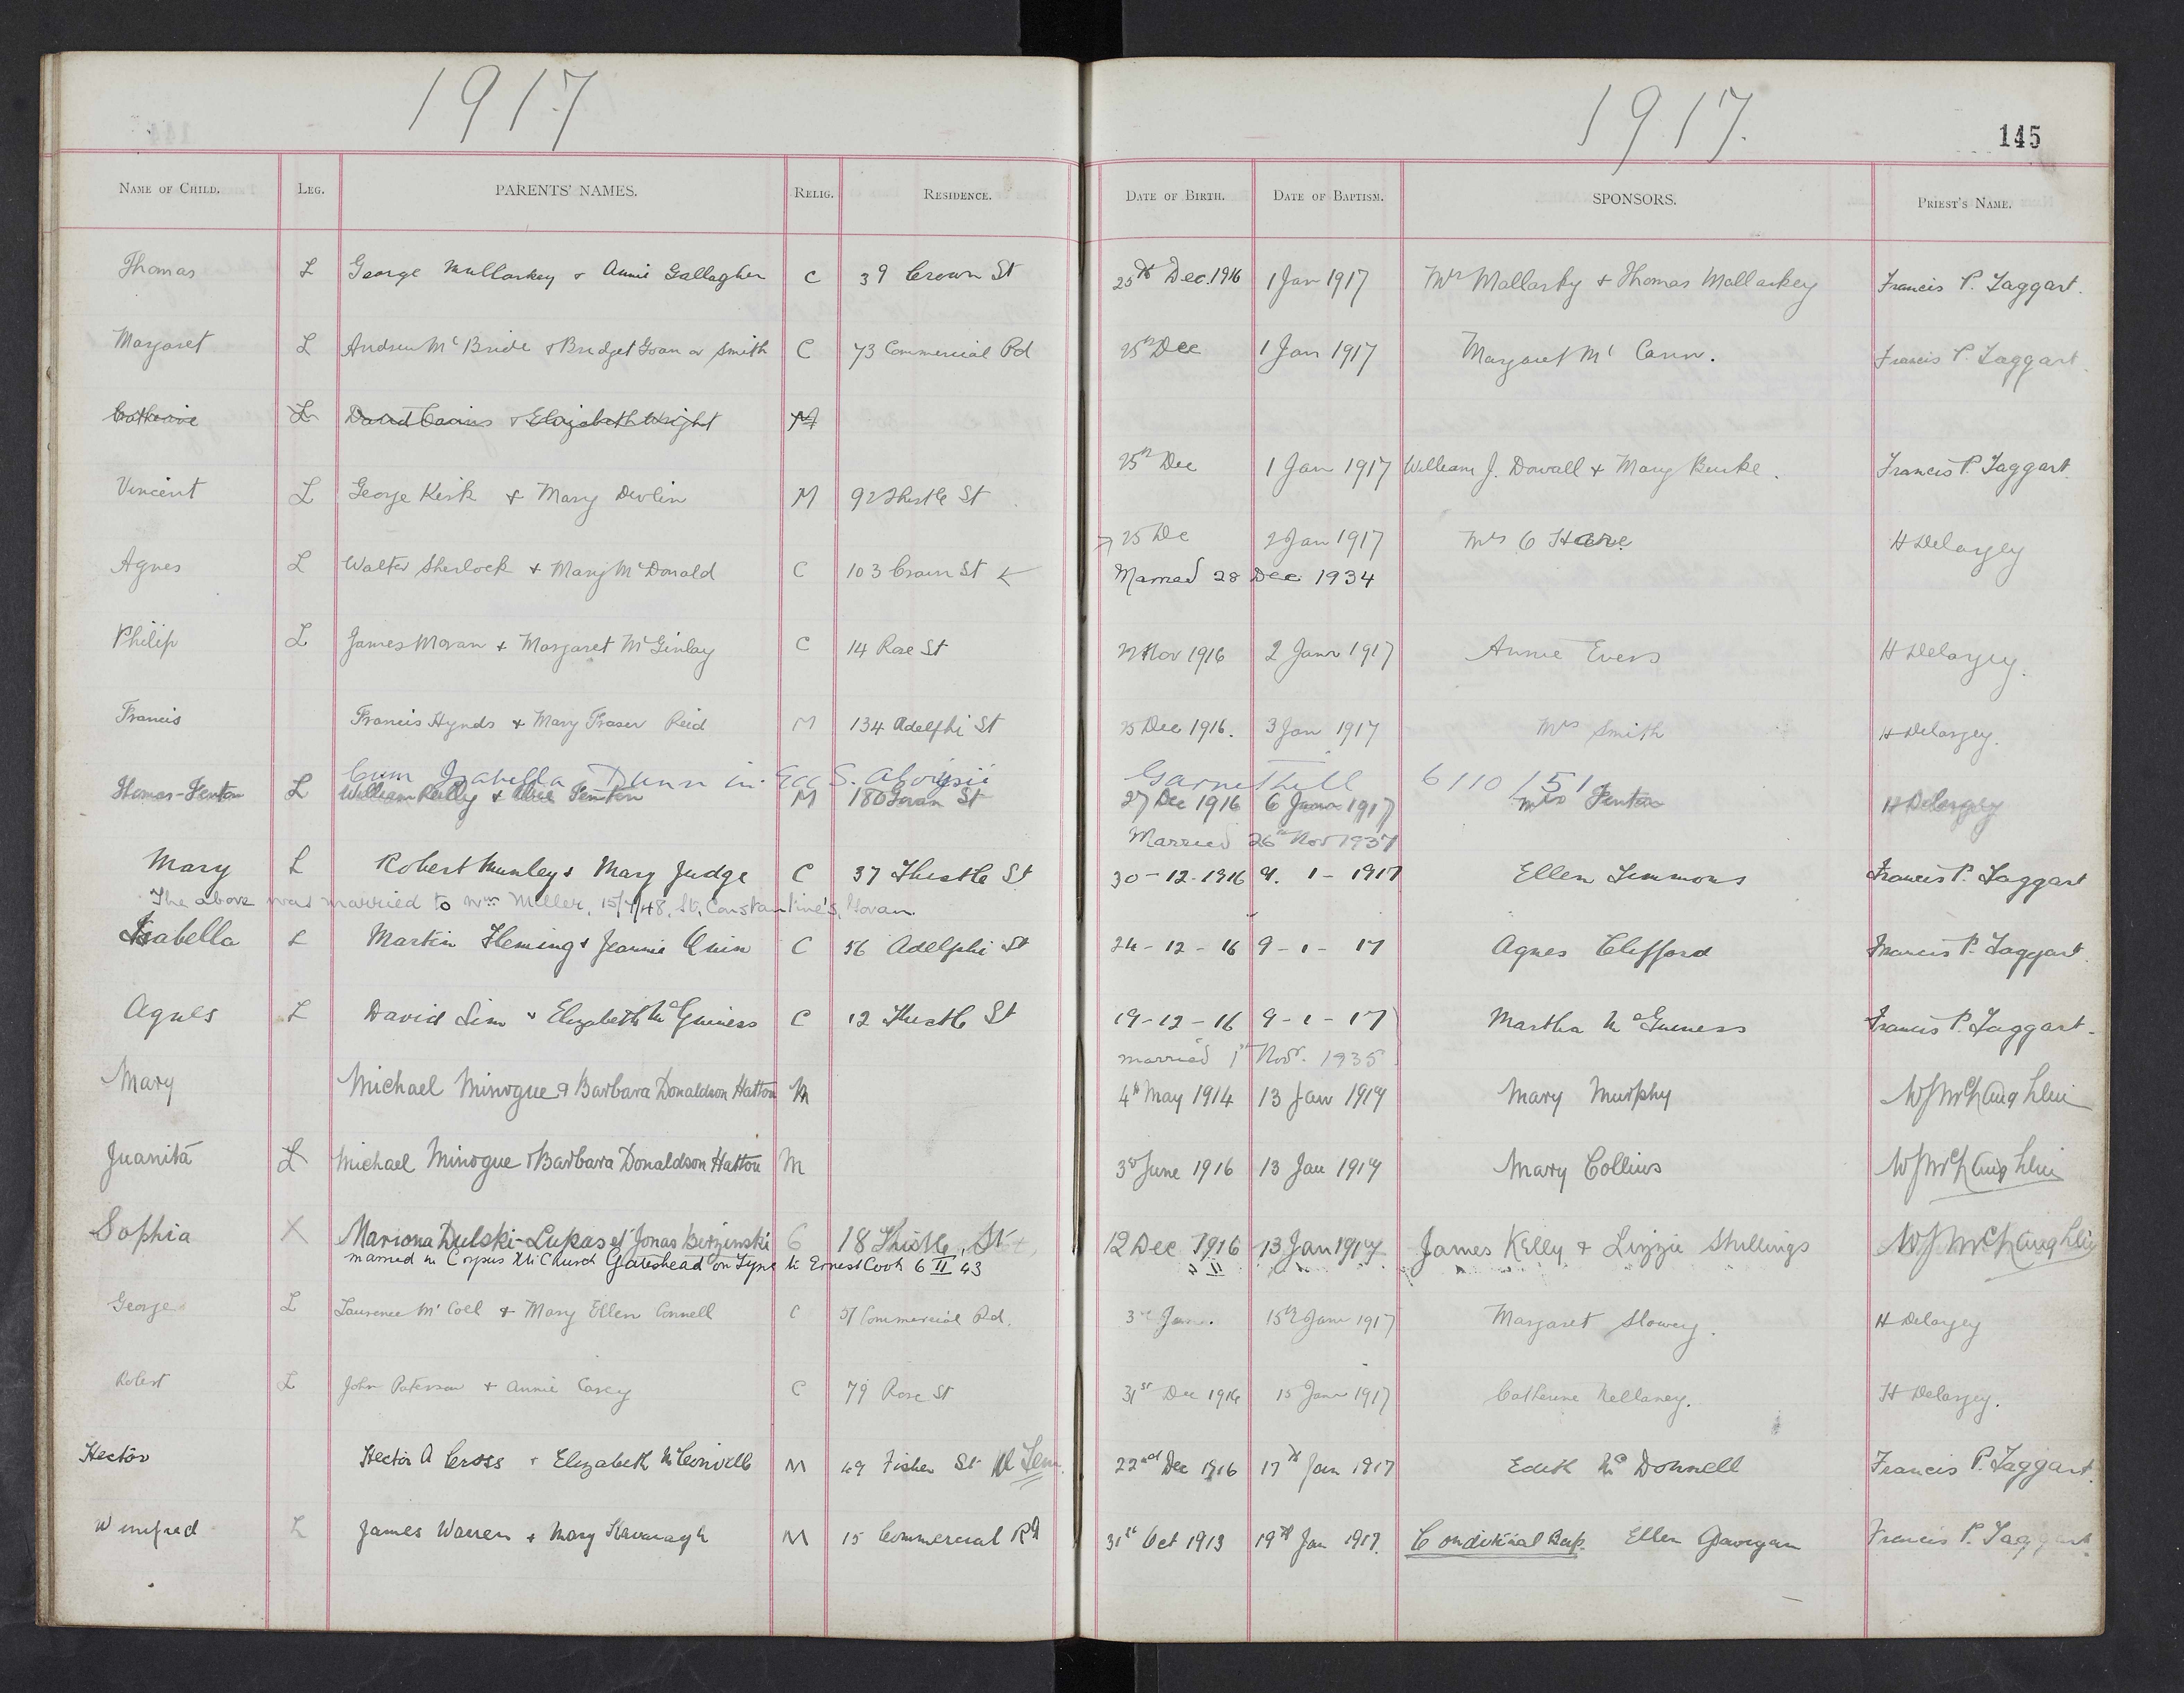 1917
1917.
145
NAME OF CHILD. LEG. PARENTS' NAMES. RELIG. RESIDENCE. DATE OF BIRTH. DATE OF BAPTISM. SPONSORS. PRIEST'S NAME.
Thomas L George Mullarkey & Annie Gallagher C 39 Crown St 25th Dec. 1916 1 Jan 1917 Mrs Mallarky & Thomas Mallarkey Francis P. Taggart.
Margaret L Andrew McBride & Bridget Goan or Smith C 73 Commercial Rd 25th Dec 1 Jan 1917 Margaret Mc Cann. Francis P. Taggart.
Catherine L David Cairns & Elizabeth Wright M
Vincent L George Kirk & Mary Devlin M 92 Thistle St 25th Dec 1 Jan 1917 William J. Dowall & Mary Burke. Francis P. Taggart.
Agnes L Walter Sherlock & Mary McDonald C 103 Crown St 25 De 2 Jan 1917 Mrs O Hare H Delargey
Married 28 Dec 1934
Philip L James Moran & Margaret McGinlay C 14 Rae St 22 Nov 1916 2 Janr 1917 Annie Evers H Delargey.
Francis Francis Hynds & Mary Fraser Reid M 134 Adelphi St 25 Dec 1916. 3 Jan 1917 Mrs Smith H Delargey.
Cum Isabella Dunn in Ecc S. Aloysii Garnethill 6/10/51
Thomas-Fenton L William Reilly & Alice Fenton M 180 Govan St 27 Dec 1916 6 Janr 1917 Mrs Fenton H Delargey
Married 26th Nov 1937
Mary L Robert Munley & Mary Judge C 37 Thistle St 30-12-1916 9. 1-1917 Ellen Simmons Francis P. Taggart
The above was married to Wm Miller, 15/7/48, St. Constantine's, Govan.
Isabella L Martin Fleming & Jeannie Quin C 56 Adelphi St 24-12-16 9-1-17 Agnes Clifford Francis P. Taggart.
Agnes L David Sim & Elizabeth McGuiness C 12 Thistle St 19-12-16 9-1-17 Martha McGuiness Francis P. Taggart.
married 1st Novr. 1935
Mary Michael Minogue & Barbara Donaldson Hatton M 4th May 1914 13 Jan 1917 Mary Murphy W J McLaughlin
Juanita L Michael Minogue & Barbara Donaldson Hatton M 3rd June 1916 13 Jan 1917 Mary Collins W J McLaughlin
Sophia X Mariona Dulski-Lukas et Jonas Berzinski C 18 Thistle St 12 Dec 1916 13 Jan 1917 James Kelly & Lizzie Stullings W J McLaughlin
married in Corpus Xti Church Gateshead on Tyne to Ernest Cook 6 II 43
George L Laurence McColl & Mary Ellen Connell C 37 Commercial Rd. 3rd Jan. 15th Janr 1917 Margaret Slowey. H Delargey
Robert L John Paterson & Annie Casey C 79 Rose St 31st Dec 1916 15 Janr 1917 Catherine Mellaney. H Delargey.
Hector Hector A Cross & Elizabeth McConville M 49 Fisher St 22nd Dec 1916 17th Jan 1917 Edith McDonnell Francis P. Taggart.
Winifred L James Warren & Mary Kavanagh M 15 Commercial Rd 31st Oct 1913 19th Jan 1917. Conditional Bap. Ellen Gavigan Francis P. Taggart.